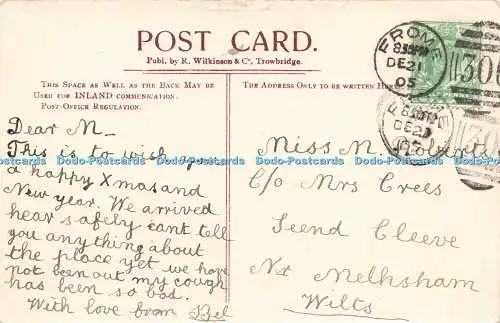 POST CARD.
Publ. by R. Wilkinson & Co, Trowbridge.
THIS SPACE AS WELL AS THE BACK MAY BE
USED FOR INLAND COMMUNICATION.
POST-OFFICE REGULATION.
THE ADDRESS ONLY TO BE WRITTEN HERE.
FROME
DE 21
05
305
FROME
DE 21
05
30
Dear M_
This is to wish you
a happy Xmas and
New year. We arrived
hear safely cant tell
you any thing about
the place yet we have
not been out my cough
has been so bad.
With love from
Miss M.
C/o Mrs Crees
Seend Cleeve
Nr Melksham
Wilts
Dodo-Postcards Dodo-Postcards Dodo-Postcards Dodo-Postcards Dodo-Postcards